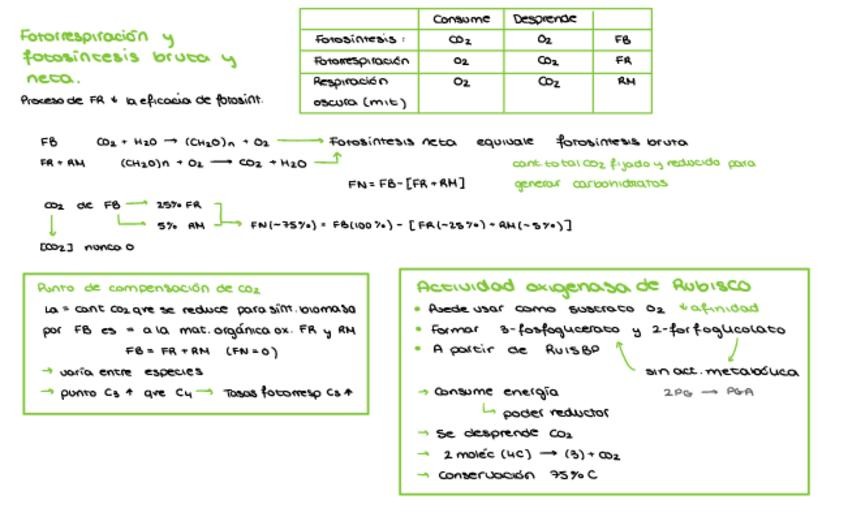 Fotorrespiración y
fotosíntesis bruta y
neta.
Proceso de FR ↓ la eficacia de fotosint.
Consume Desprende
Fotosíntesis: CO2 O2 FB
Fotorrespiración O2 CO2 FR
Respiración O2 CO2 RM
oscura (mit)
FB CO2 + H2O → (CH2O)n + O2 → Fotosíntesis neta equivale fotosíntesis bruta
FR + RM (CH2O)n + O2 → CO2 + H2O
cant. total CO2 fijado y reducido para
generar carbohidratos
FN = FB - [FR + RM]
CO2 de FB → 25% FR
5% RM → FN(~75%) = FB(100%) - [FR(~25%) + RM(~5%)]
[CO2] nunca 0
Punto de compensación de CO2
La = cant CO2 que se reduce para sint. biomasa
por FB es = a la mat. orgánica ox. FR y RM
FB = FR + RM (FN = 0)
→ varía entre especies
→ punto C3 ↑ que C4 → Tasas fotorresp C3 ↑
Actividad oxigenasa de Rubisco
• Puede usar como sustrato O2 ↓ afinidad
• Formar 3-fosfoglicerato y 2-forfoglicolato
• A partir de RuISBP
sin act. metabólica
2PG → PGA
→ Consume energía
↳ poder reductor
→ Se desprende CO2
→ 2 moléc (4C) → (3) + CO2
→ Conservación 75% C